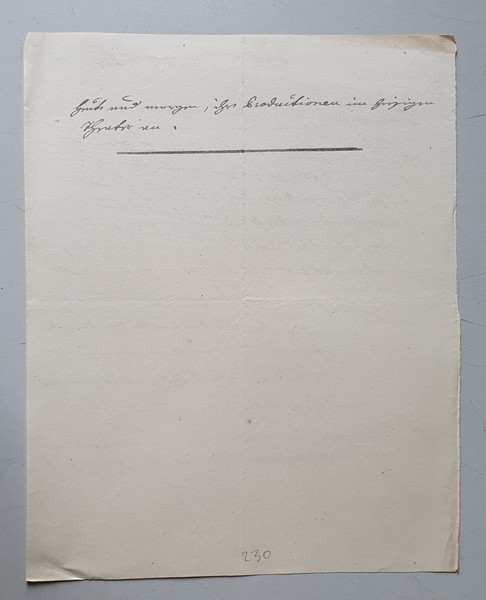 heute und morgen, ihre Productionen im hiesigen
Theater an.
230